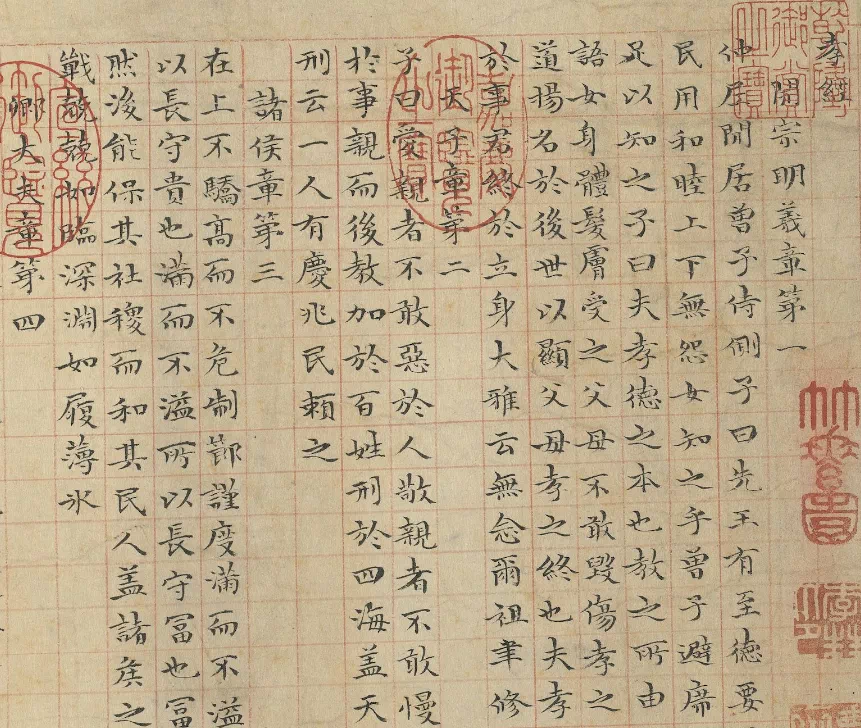 孝經
開宗明義章第一
仲尼閒居曾子侍側子曰先王有至德要
民用和睦上下無怨女知之乎曾子避席
足以知之子曰夫孝德之本也教之所由
語女身體髮膚受之父母不敢毀傷孝之
道揚名於後世以顯父母孝之終也夫孝
於事君終於立身大雅云無念爾祖聿修
天子章第二
子曰愛親者不敢惡於人敬親者不敢慢
於事親而後教加於百姓刑於四海蓋天
刑云一人有慶兆民賴之
諸侯章第三
在上不驕高而不危制節謹度滿而不溢
以長守貴也滿而不溢所以長守冨也冨
然後能保其社稷而和其民人蓋諸侯之
戰兢兢如臨深淵如履薄氷
卿大夫章第四
嘉慶御覽之寶
宣統御覽之寶